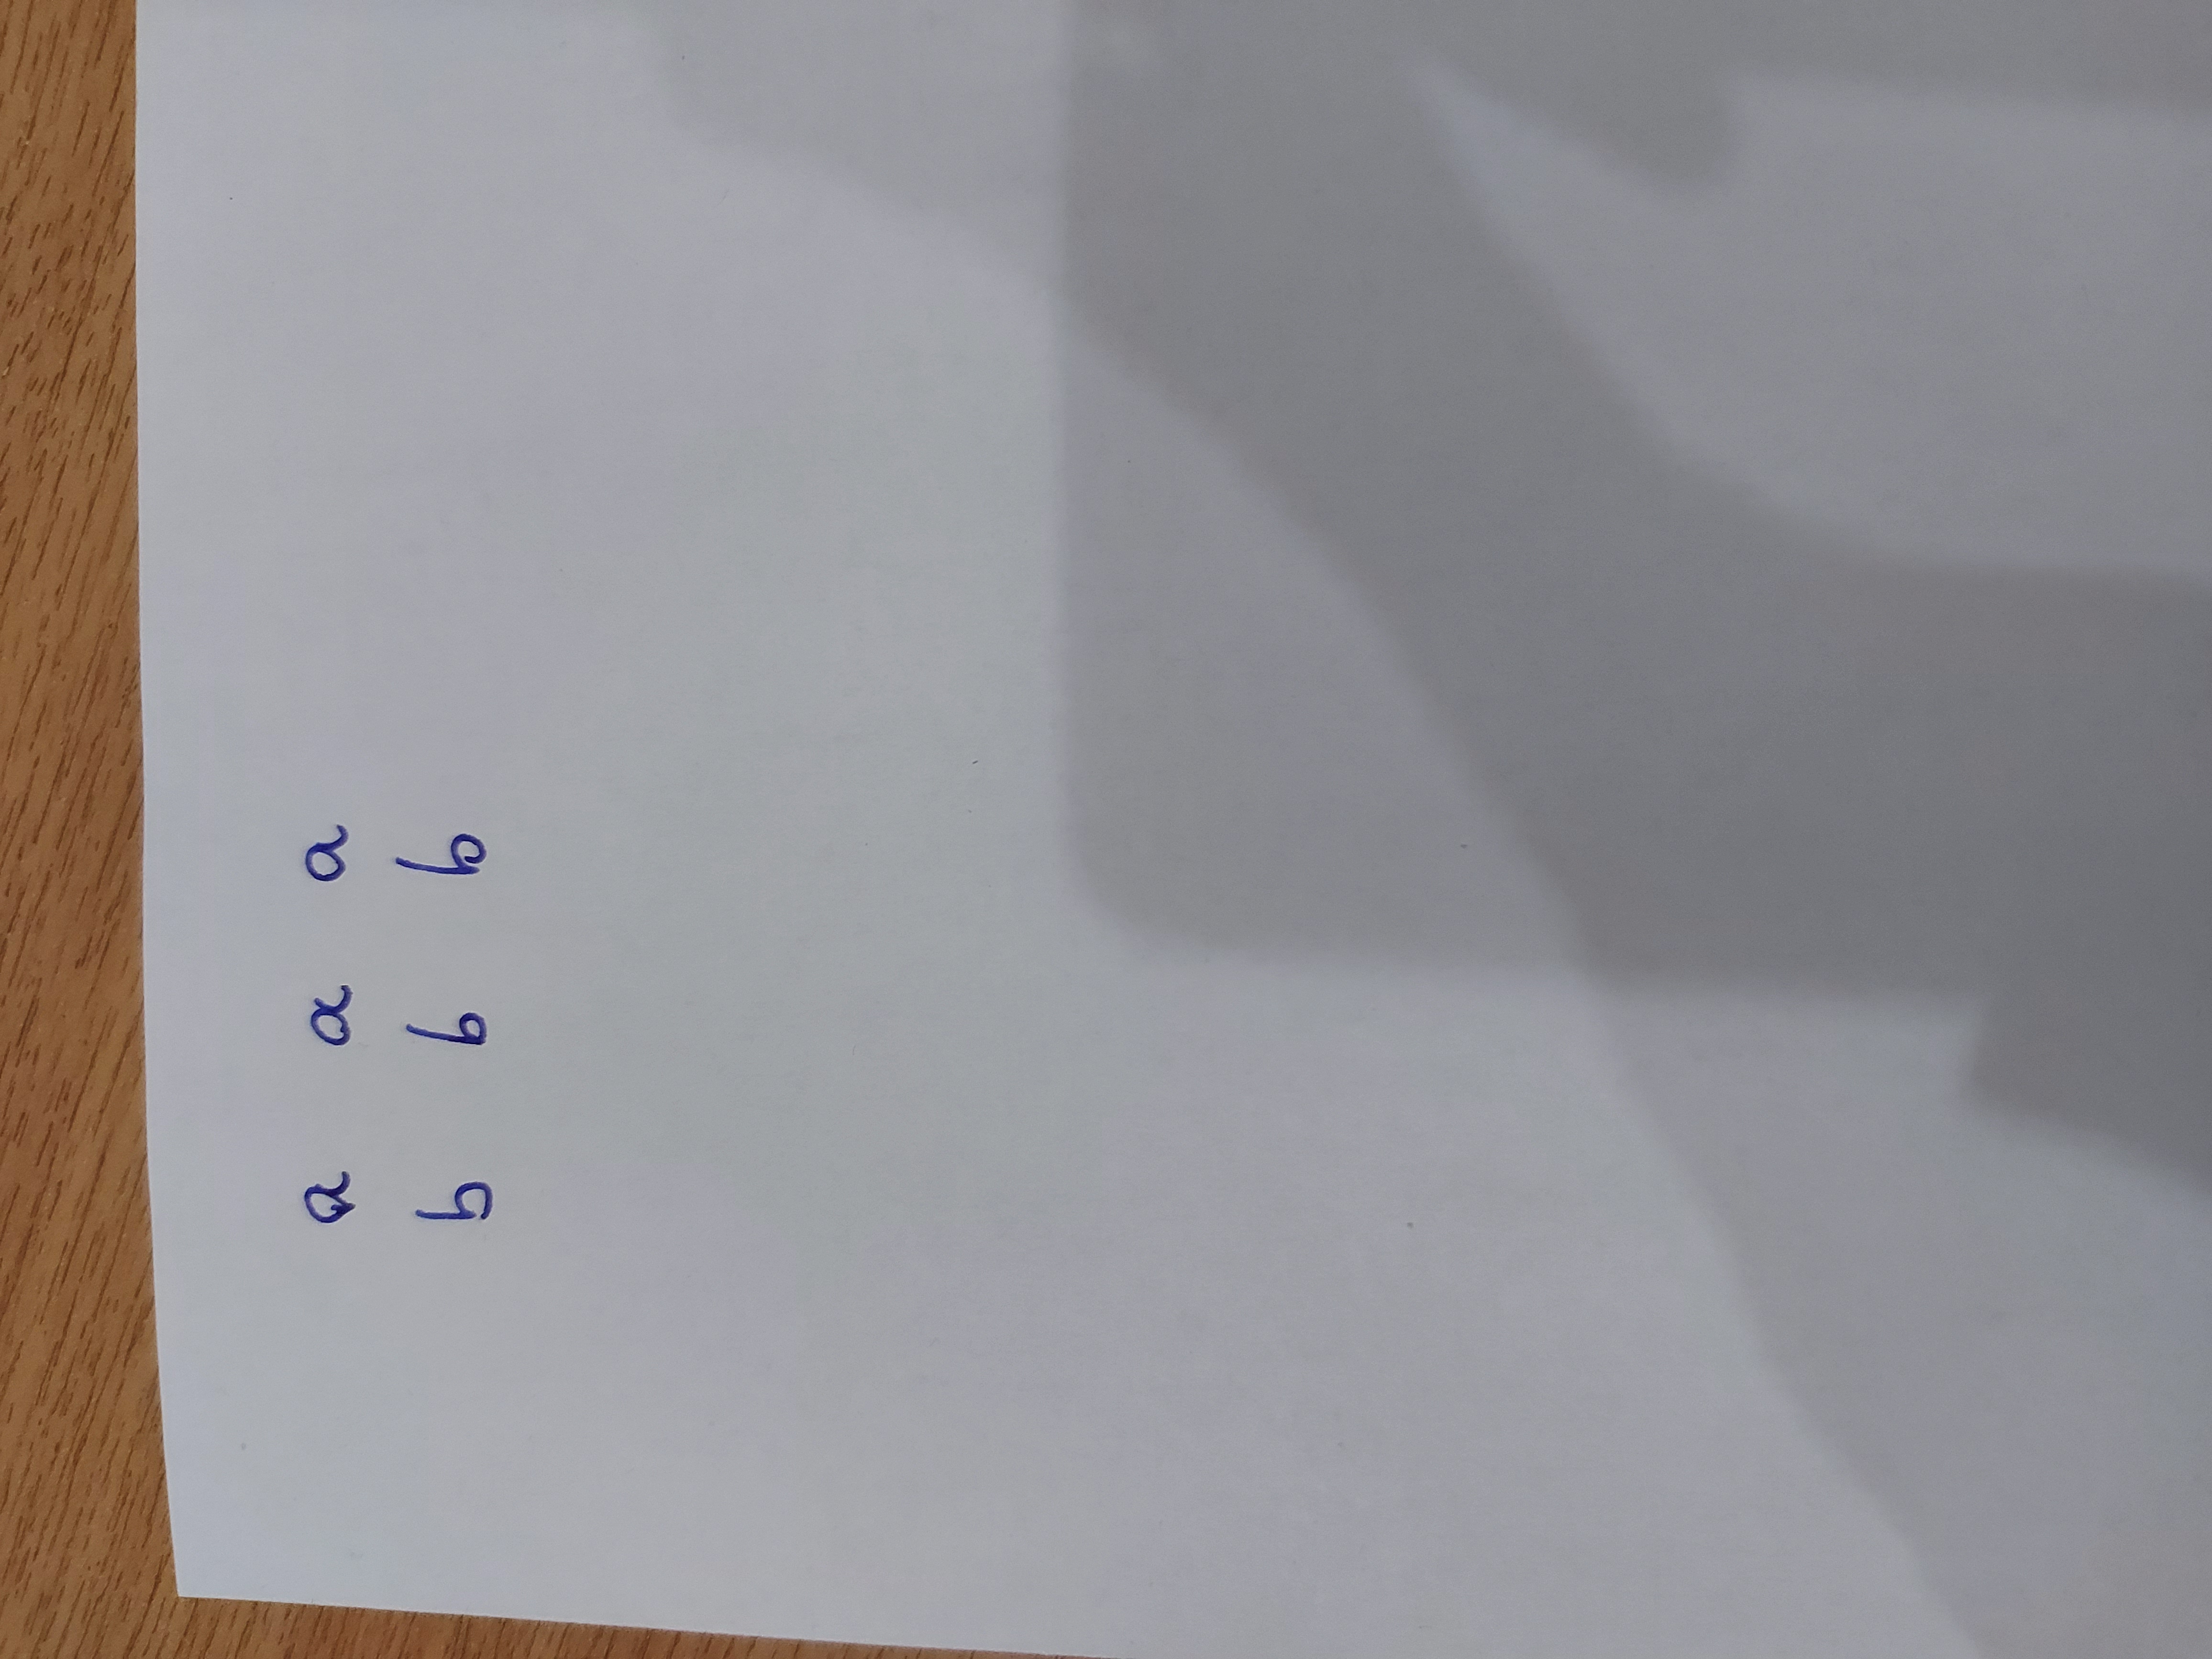 a a a
b b b